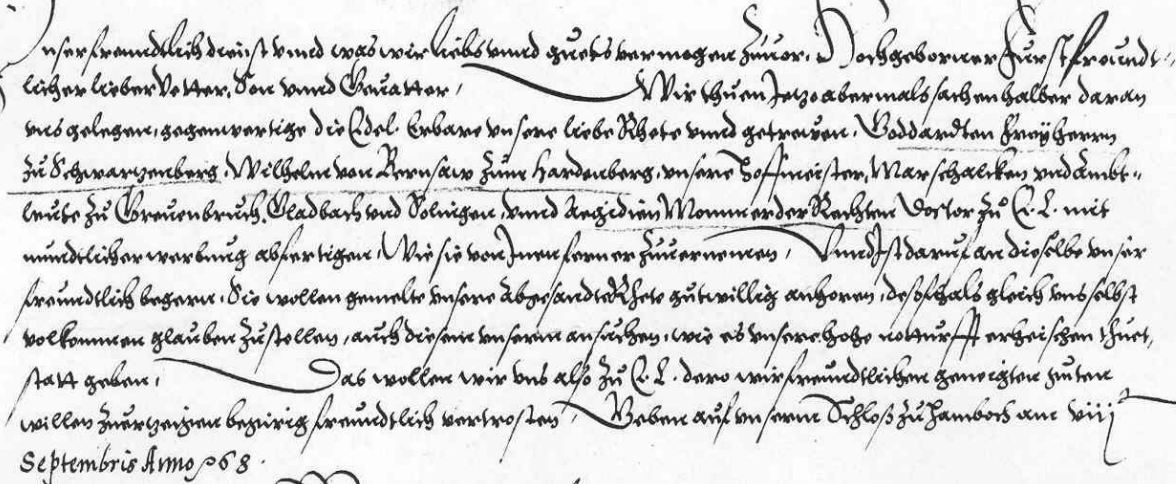 Unser freundtlich dienst vnnd was wir liebs vnnd guets vermogen zuuor. Hochgeborner Furst freundt-
licher lieber Vetter, Son vnnd Geuatter, Wir thuen Jetzo abermals sachen halber daran
vns gelegen, gegenwertige die Edel. Erbare vnsere liebe Rhete vnnd getrewen, Goddardten Freyherrn
zu Schwartzenberg, Wilhelm von Bernsaw zum Hardenberg, vnsere Hoffmeister, Marschalcken vnd Ambt-
leute zu Greuenbruch, Gladbach vnd Solingen, vnnd Aegidien Mommer der Rechten Doctor zu E. L. mit
mundtlicher werbung abfertigen, Wie sie von Jnen ferner zuuernemen, Vnnd Jst daruf an dieselbe vnser
freundtlich begern, Sie wollen gemelte vnsere Abgesandte Rhete gutwillig anhoren, deßfhals gleich vns selbst
volkommen glauben zustellen, auch diesem vnserm ansuchen, wie es vnsere hohe notturfft erheischen thuet,
statt geben, Das wollen wir vns also zu E. L. dero wir freundtlichen geneigten guten
willen zuertzeigen begirig freundtlich vertrosten Geben auf vnserm Schloß zu Hamboch am viij
Septembris Anno 68.